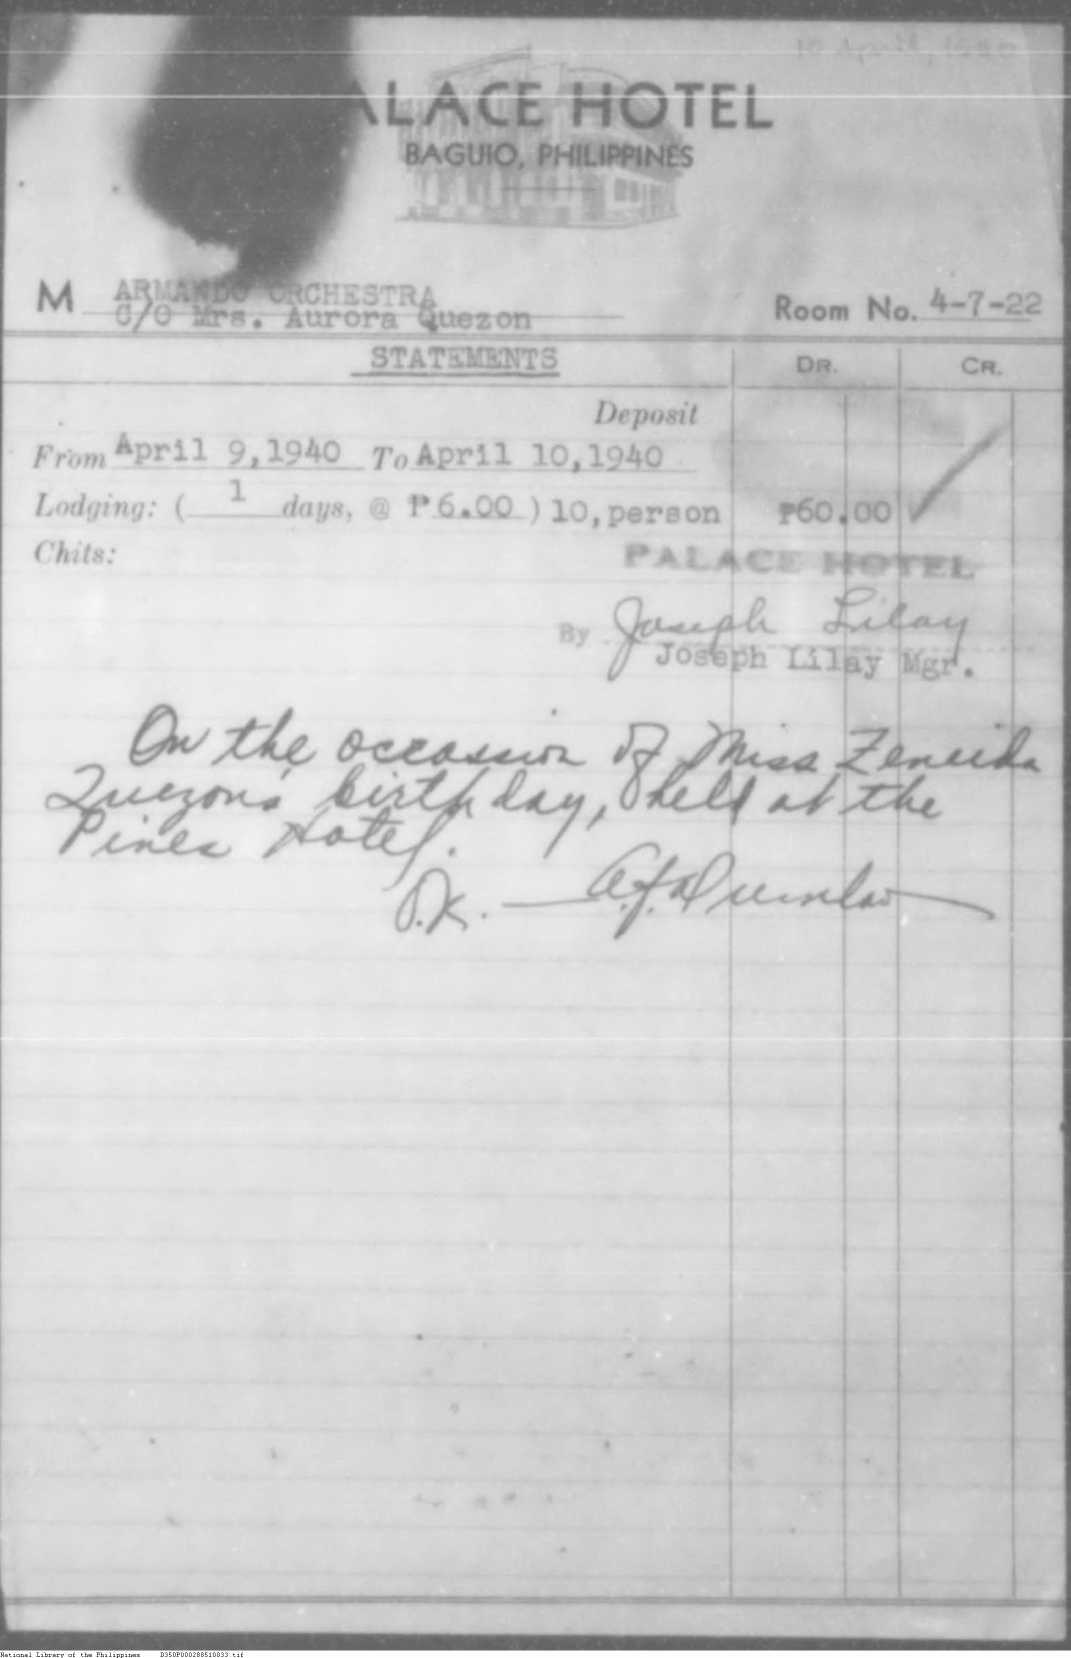 10 April, 1940
ALACE HOTEL
BAGUIO, PHILIPPINES
M ARMANDO ORCHESTRA
C/O Mrs. Aurora Quezon
Room No. 4-7-22
STATEMENTS DR. CR.
Deposit
From April 9,1940 To April 10,1940
Lodging: ( 1 days, @ ₱6.00 ) 10,person ₱60.00
Chits:
PALACE HOTEL
By Joseph Lilay
Joseph Lilay Mgr.
On the occassion of Miss Zeneida
Quezon's birthday, held at the
Pines Hotel.
O.K. —
National Library of the Philippines D350P000288510033.tif